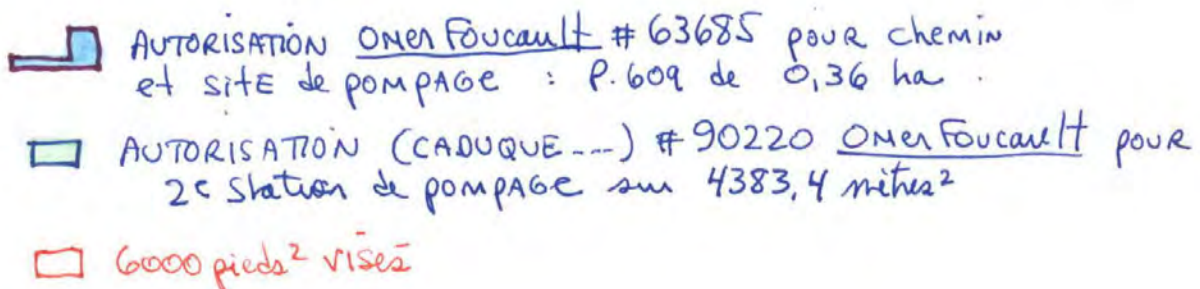 AUTORISATION OMER FOUCAULT # 63685 POUR chemin
et SITE de POMPAGE : P.609 de 0,36 ha.
AUTORISATION (CADUQUE...) # 90220 OMER FOUCAULT POUR
2e Station de POMPAGE sur 4383,4 mètres²
6000 pieds² visés